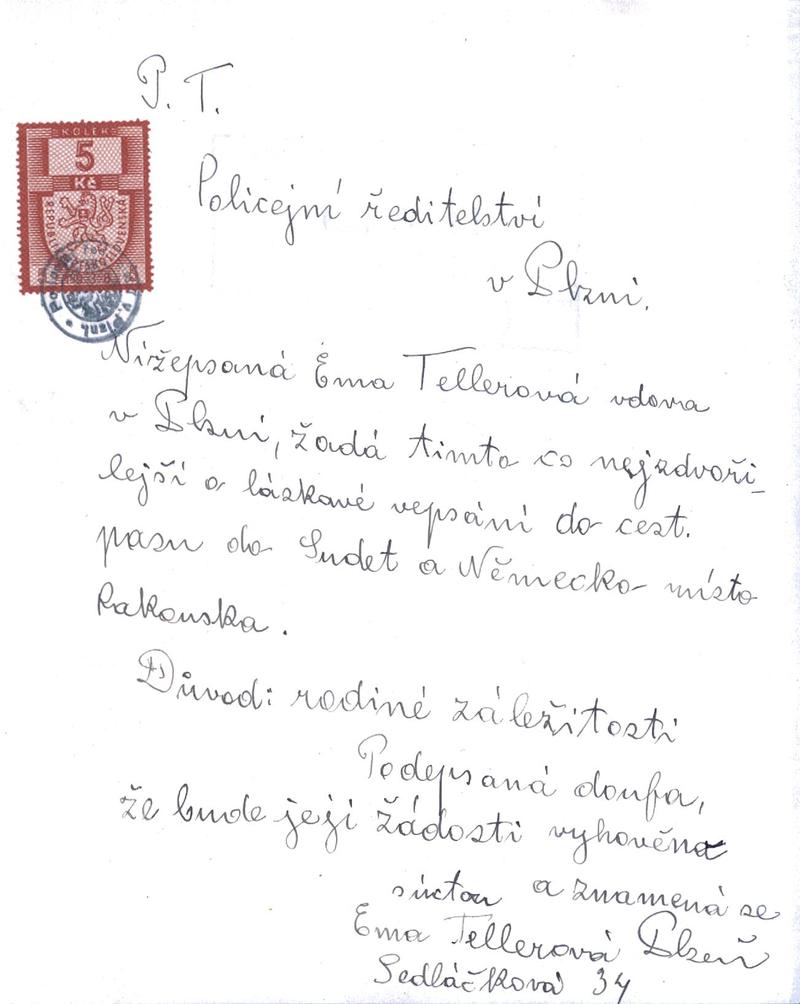 P. T.
KOLEK
5
Kč
REPUBLIKA ČESKOSLOVENSKÁ
Policejní ředitelství
v Plzni.
Nížepsaná Ema Tellerová vdova
v Plzni, žadá timto co nejzdvoři_
lejší o láskavé vepsání do cest.
pasu do Sudet a Německo místo
Rakouska.
Důvod: rodiné záležitosti
Podepsaná doufa,
že bude její žádosti vyhověna
a znamená se
Ema Tellerová Plzeň
Sedláčková 34